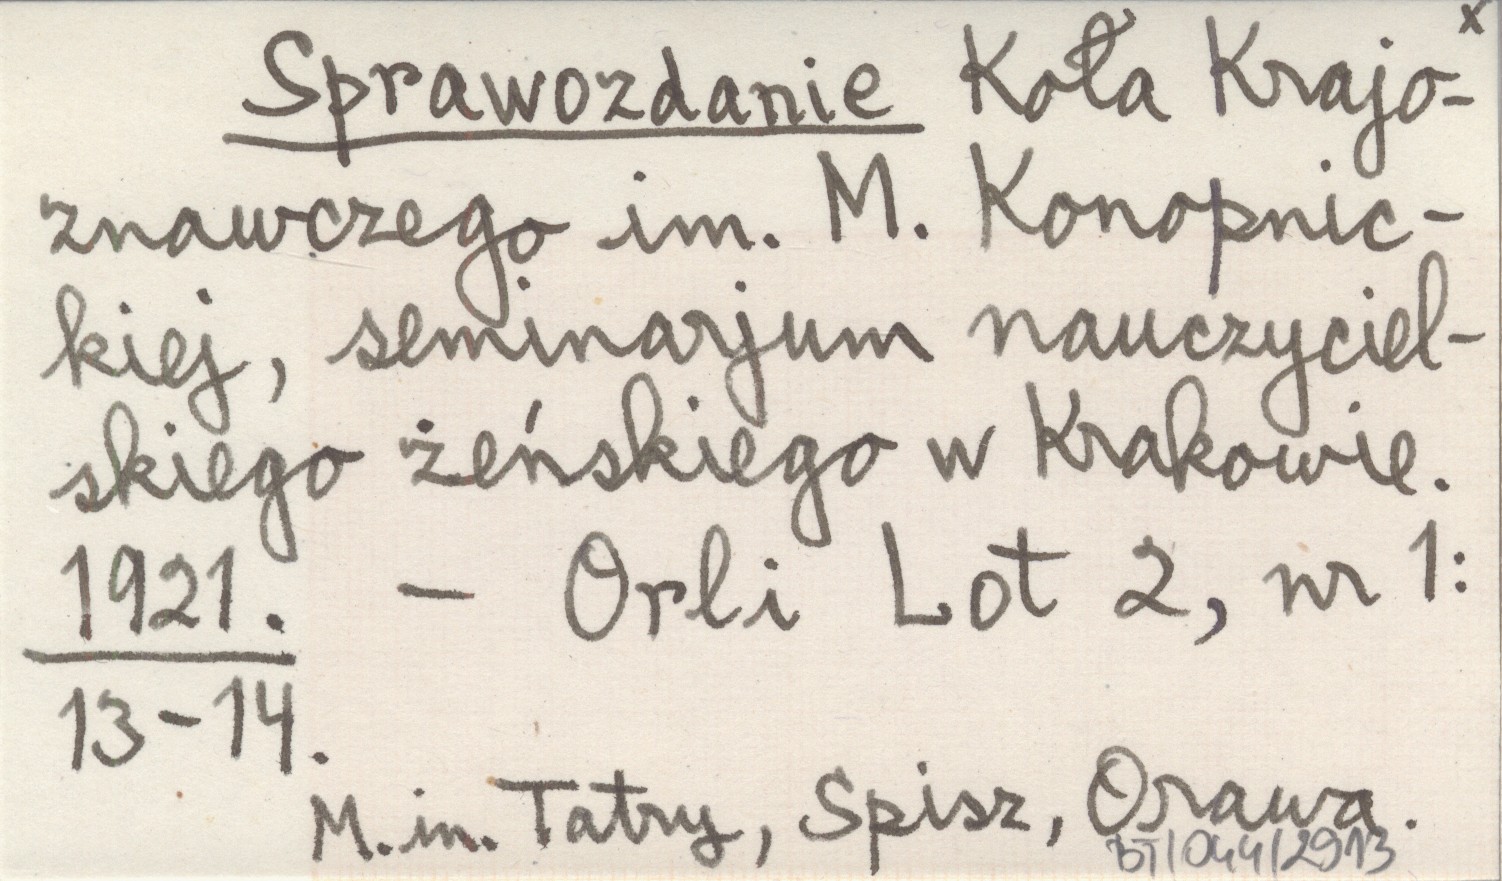 x
Sprawozdanie Koła Krajo-
znawczego im. M. Konopnic-
kiej, seminarjum nauczyciel-
skiego żeńskiego w Krakowie.
1921. - Orli Lot 2, nr 1:
13-14.
M.in. Tatry, Spisz, Orawa.
BT/044/2913